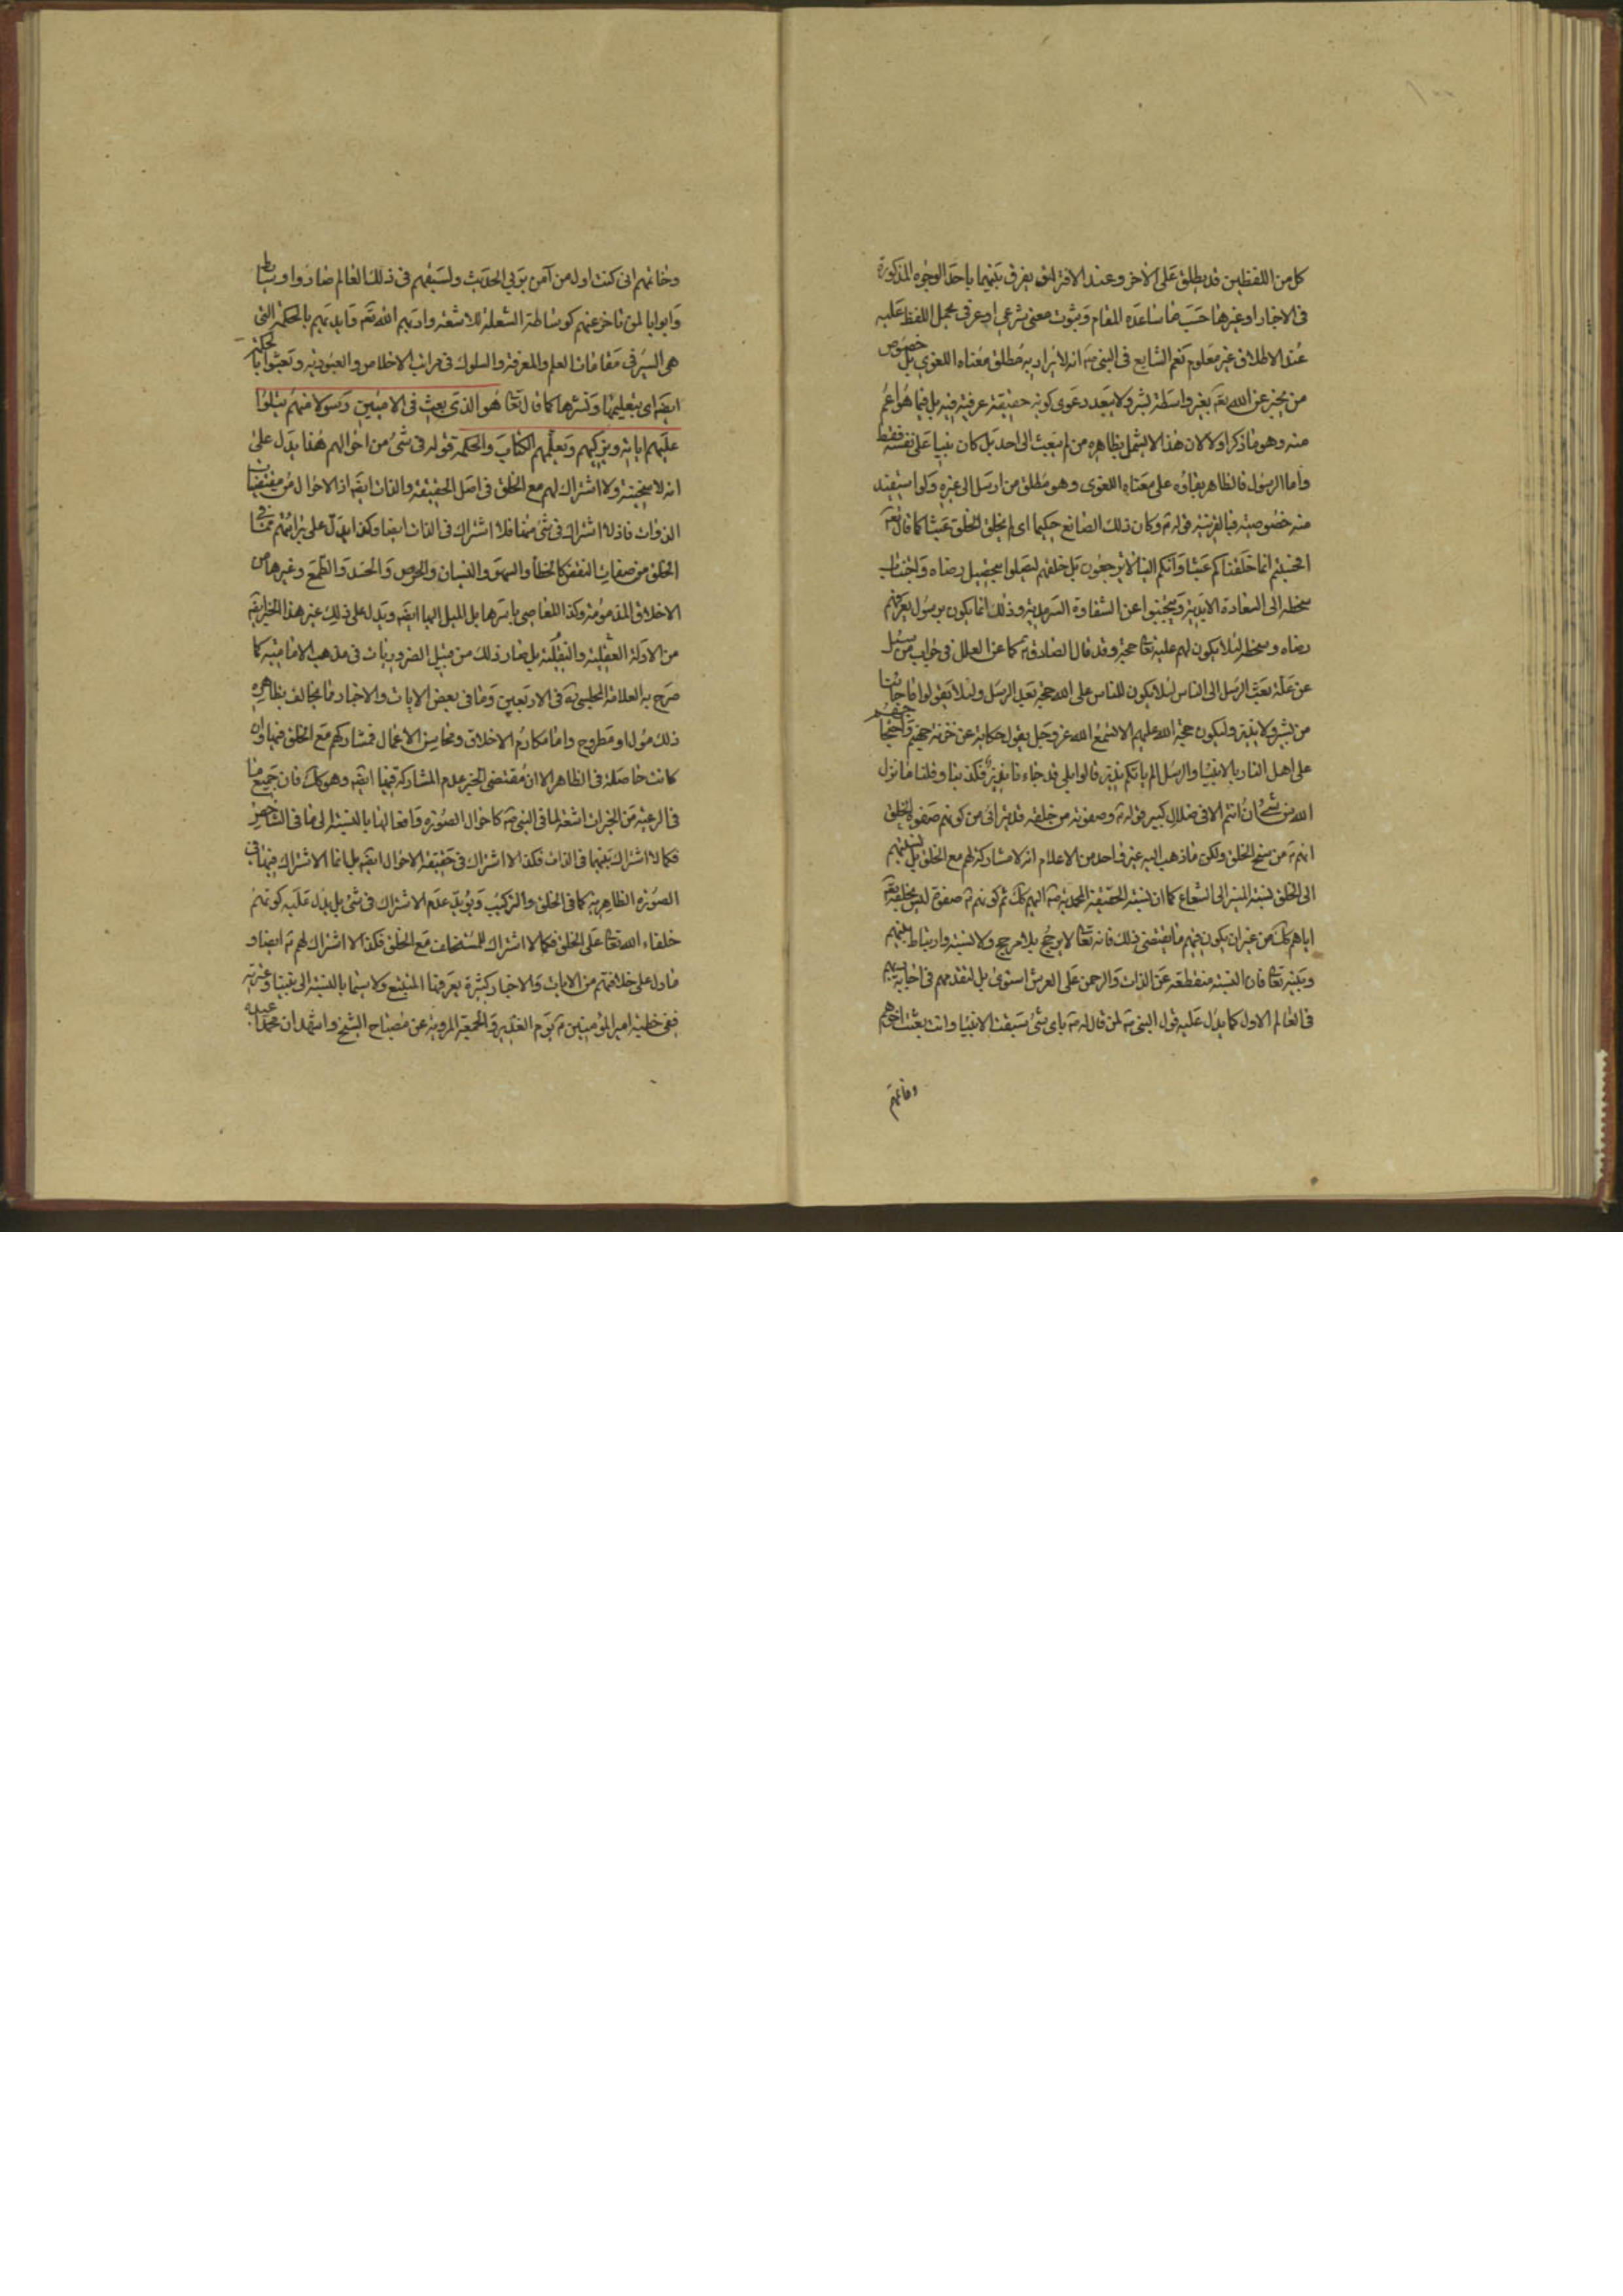 كل من اللفظين قد يطلق على الاخر وعند الافتراق يفرق بينهما باحد الوجوه المذكورة
فى الاخبار او غيرها حسب ما ساعده المقام وثبوت معنى شرعى او عرفى يحمل اللفظ عليه
عند الاطلاق غير معلوم نعم الشايع فى النبى صه انه لا يراد به مطلق معناه اللغوى بل خصوص
من يخبر عن الله تعه بغير واسطة بشر ولا يبعد دعوى كونه حقيقة عرفية فيه بل فيما هو اعم
منه وهو ما ذكر اولا لان هذا لا يشمل بظاهره من لم يبعث الى احد بل كان نبيا على نفسه فقط
واما الرسول فالظاهر بقاؤه على معناه اللغوى وهو مطلق من ارسل الى غيره ولو استفيد
منه خصوصية فبالقرينة قوله ع وكان ذلك الصانع حكيما اى لم يخلق الخلق عبثا كما قال تعه
افحسبتم انما خلقناكم عبثا وانكم الينا لا ترجعون بل خلقهم ليصلوا بتحصيل رضاه واجتناب
سخطه الى السعادة الابدية ويجتنبوا عن الشقاوة السرمدية وذلك انما يكون برسول يعرفهم
رضاه وسخطه لئلا يكون لهم عليه تعا حجة وقد قال الصادق ع كما عن العلل فى جواب من سئل
عن علة بعث الرسل الى الناس لئلا يكون للناس على الله حجة بعد الرسل ولئلا يقولوا ما جائنا
من بشير ولا نذير وليكون حجة الله عليهم الا تسمع الله عز وجل يقول حكاية عن خزنة جهنم واحتجاجهم
على اهل النار بالانبياء والرسل الم ياتكم نذير قالوا بلى قد جاءنا نذير فكذبنا وقلنا ما نزل
الله من شئ ان انتم الا فى ضلال كبير قوله ع وصفوته من خلقه قد يترائى من كونهم صفوة الخلق
انهم ع من سنخ الخلق ولكن ما ذهب اليه غير واحد من الاعلام انه لا مشاركة لهم مع الخلق بل نسبتهم
الى الخلق نسبة المنير الى الشعاع كما ان نسبة الحقيقة المحمدية صه اليهم كك ثم كونهم ع صفوة ليس بخلقه تعه
اياهم كك من غير ان يكون فيهم ما يقتضى ذلك فانه تعا لا يرجح بلا مرجح ولا لنسبة وارتباط بينهم
وبينه تعا فان النسبة منقطعة عن الذات والرحمن على العرش استوى بل لتقدمهم فى اجابتهم
فى العالم الاول كما يدل عليه قول النبى صه لمن قال له صه باى شئ سبقت الانبياء وانت بعثت اخرهم
وخاتمهم
وخاتمهم انى كنت اول من آمن بربى الحديث ولسبقهم فى ذلك العالم صاروا وسايط
وابوابا لمن تاخر عنهم كوساطة الشعلة للاشعة وادبهم الله تعه وايدهم بالحكمة التى
هى السير فى مقامات العلم والمعرفة والسلوك فى مراتب الاخلاص والعبودية وبعثوا بالحكمة
ايضه اى بتعليمها ونشرها كما قال تعا هو الذى بعث فى الاميين رسولا منهم يتلوا
عليهم اياته ويزكيهم ويعلمهم الكتاب والحكمة قوله فى شئ من احوالهم هذا يدل على
انه لا سنخية ولا اشتراك لهم مع الخلق فى اصل الحقيقة والذات ايضه اذ الاحوال من مقتضيات
الذوات فاذ لا اشتراك فى شئ منها فلا اشتراك فى الذات ايضا وكذا يدل على برائتهم عما فى
الخلق من صفات النقص كالخطاء والسهو والنسيان والحرص والحسد والطمع وغيرها من
الاخلاق المذمومة وكذا المعاصى باسرها بل الميل اليها ايضه ويدل على ذلك غير هذا الخبر ايضه
من الادلة العقلية والنقلية بل صار ذلك من قبيل الضروريات فى مذهب الامامية كما
صرح به العلامة المجلسى ره فى الاربعين وما فى بعض الايات والاخبار مما يخالف بظاهره
ذلك مؤل او مطروح واما مكارم الاخلاق ومحاسن الاعمال فمشاركهم مع الخلق فيها وان
كانت حاصلة فى الظاهر الا ان مقتضى الخبر عدم المشاركة فيها ايضه وهو كك فان جميع ما
فى الرعية من الخيرات اشعة لما فى النبى صه كاحوال الصورة وافعالها بالنسبة الى ما فى الشاخص
فكما لا اشتراك بينهما فى الذات فكذا لا اشتراك فى حقيقة الاحوال ايضه بل انما الاشتراك فيها فى
الصورة الظاهرية كما فى الخلق والتركيب ويؤيد عدم الاشتراك فى شئ بل يدل عليه كونهم
خلفاء الله تعا على الخلق فكما لا اشتراك للمستخلف مع الخلق فكذا لا اشتراك لهم ع ايضا و
ما دل على خلافتهم من الايات والاخبار كثيرة يعرفها المتتبع ولا سيما بالنسبة الى نبينا وعترته
ففى خطبة امير المؤمنين ع يوم الغدير والجمعة المروية عن مصباح الشيخ واشهد ان محمدا عبده